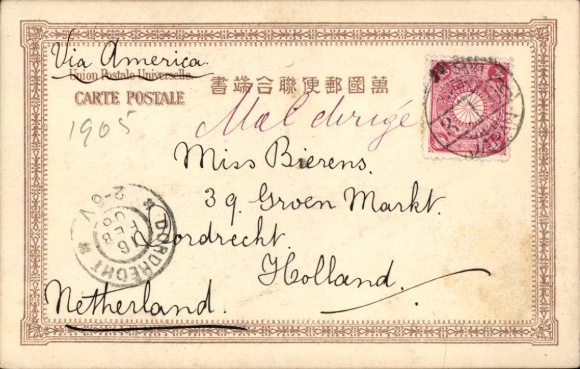 Via America.
Union Postale Universelle.
CARTE POSTALE
書端合聯便郵國萬
1905
Mal dirigé
Miss Bierens.
39. Groen Markt.
Dordrecht.
Holland.
Netherland.
DORDRECHT
16
FEB
2-6 V